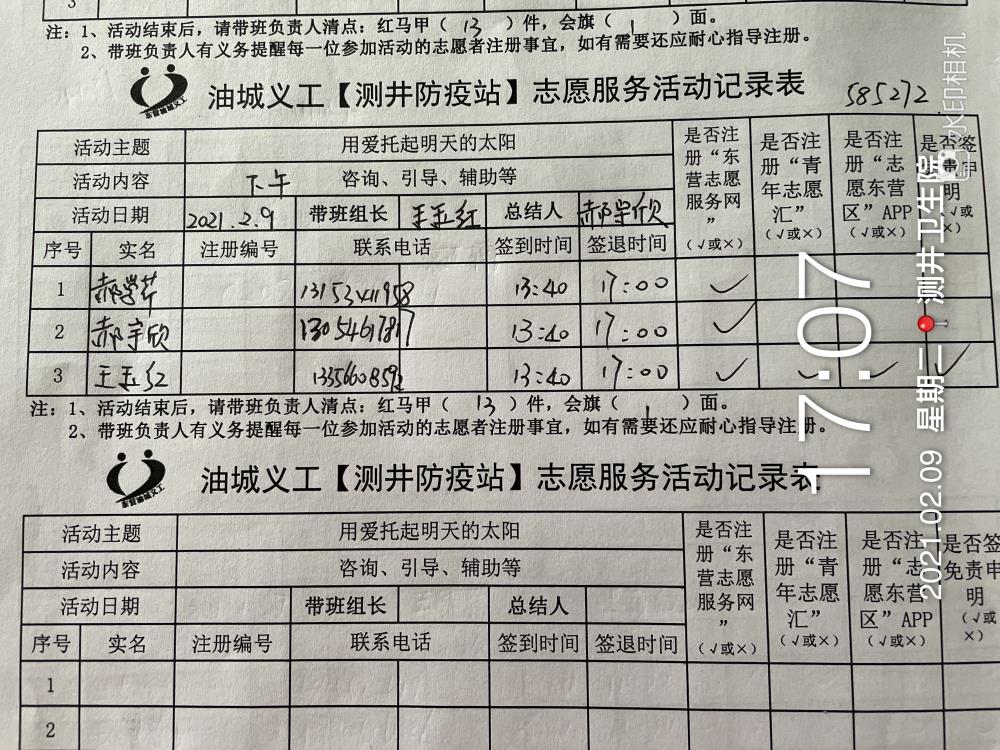 3
注：1、活动结束后，请带班负责人清点：红马甲（ 13 ）件，会旗（ 1 ）面。
2、带班负责人有义务提醒每一位参加活动的志愿者注册事宜，如有需要还应耐心指导注册。
油城义工【测井防疫站】志愿服务活动记录表 585272
活动主题 用爱托起明天的太阳 是否注册“东营志愿服务网”（√或×） 是否注册“青年志愿汇”（√或×） 是否注册“志愿东营区”APP（√或×）
活动内容 下午 咨询、引导、辅助等
活动日期 2021.2.9 带班组长 王玉红 总结人 郝宇欣
序号 实名 注册编号 联系电话 签到时间 签退时间
1 13:40 17:00 ✓
2 郝宇欣 13054617817 13:40 17:00 ✓
3 王玉红 13:40 17:00 ✓ ✓ ✓ ✓
注：1、活动结束后，请带班负责人清点：红马甲（ 13 ）件，会旗（ 1 ）面。
2、带班负责人有义务提醒每一位参加活动的志愿者注册事宜，如有需要还应耐心指导注册。
油城义工【测井防疫站】志愿服务活动记录表
活动主题 用爱托起明天的太阳 是否注册“东营志愿服务网”（√或×） 是否注册“青年志愿汇”（√或×） 是否注册“志愿东营区”APP（√或×） 是否签免责申明（√或×）
活动内容 咨询、引导、辅助等
活动日期 带班组长 总结人
序号 实名 注册编号 联系电话 签到时间 签退时间
1
2
17:07
2021.02.09 星期二 测井卫生院
水印相机